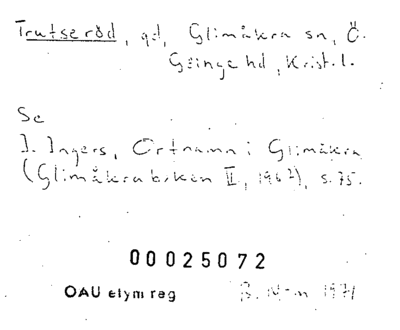 Trutseröd, gd, Glimåkra sn, Ö.
Göinge hd, Krist. l.
Se
I. Ingers, Ortnamn i Glimåkra
(Glimåkraboken II, 1967), s. 75.
00025072
OAU etym reg
B. 1971